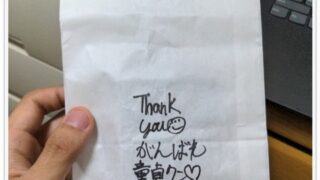 Thank
you☺
がんばれ
童貞クン♡